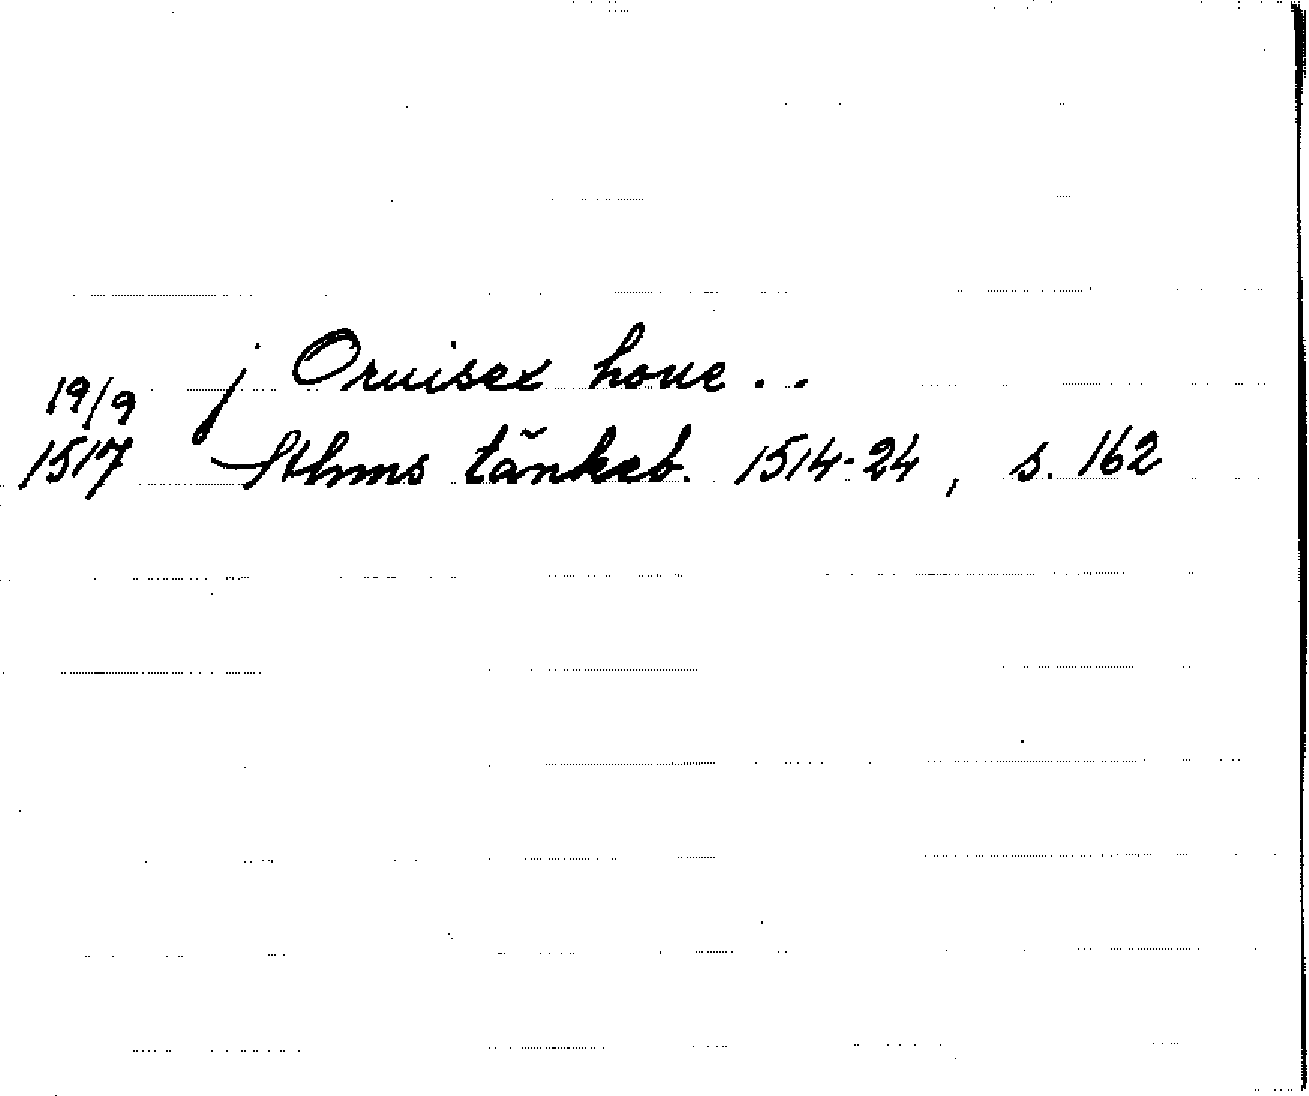 19/9 j Oruisex houe..
1517 Sthms tänkeb. 1514-24, s. 162